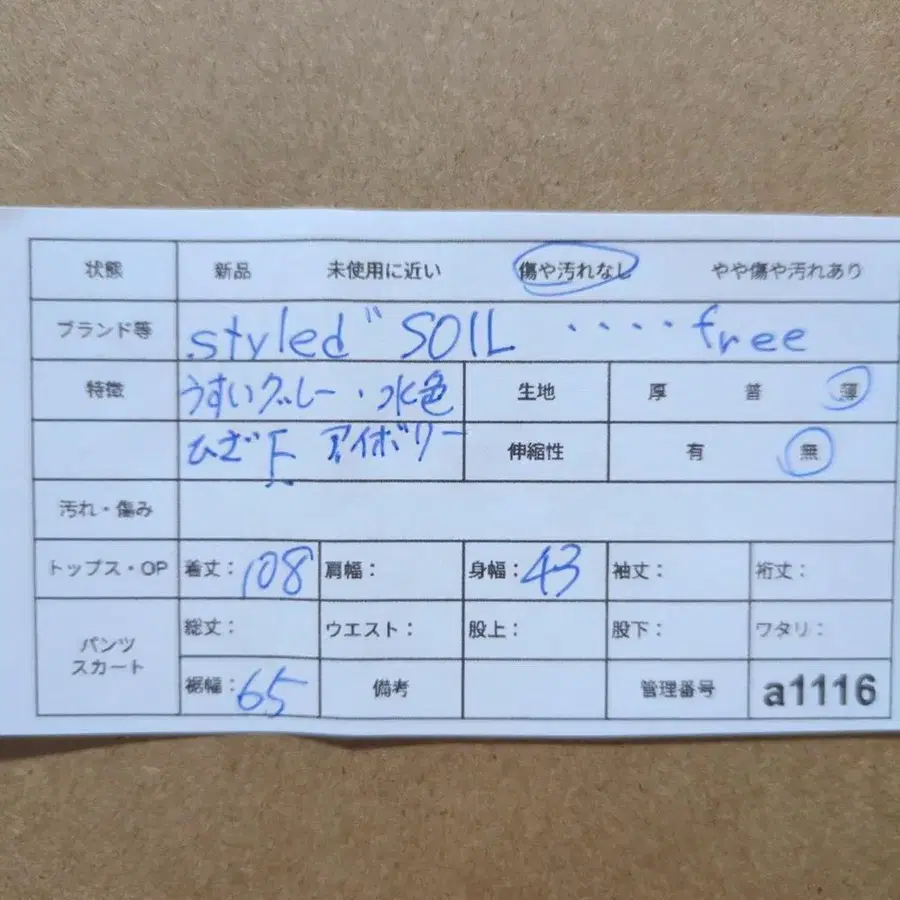 状態 新品 未使用に近い 傷や汚れなし やや傷や汚れあり
ブランド等 styled" SOIL ・・・・free
特徴 うすいグレー・水色 生地 厚 普 薄
ひざ下 アイボリー 伸縮性 有 無
汚れ・傷み
トップス・OP 着丈: 108 肩幅: 身幅: 43 袖丈: 裄丈:
パンツ スカート 総丈: ウエスト: 股上: 股下: ワタリ:
裾幅: 65 備考 管理番号 a1116